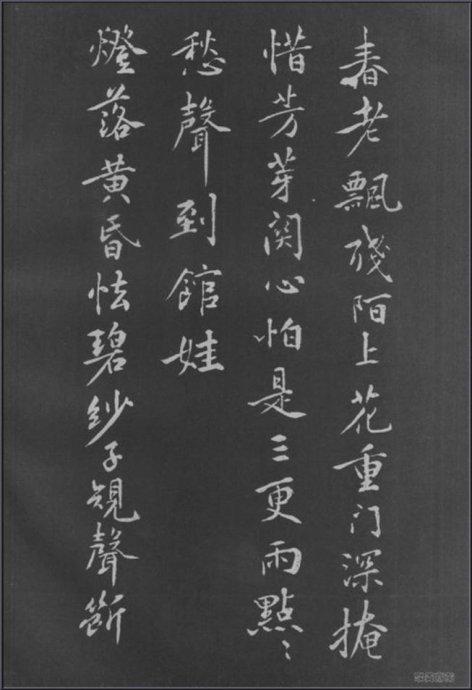 春老飄殘陌上花重门深掩
惜芳芽関心怕是三更雨點〻
愁聲到館娃
燈落黄昏怯碧紗子規聲斷